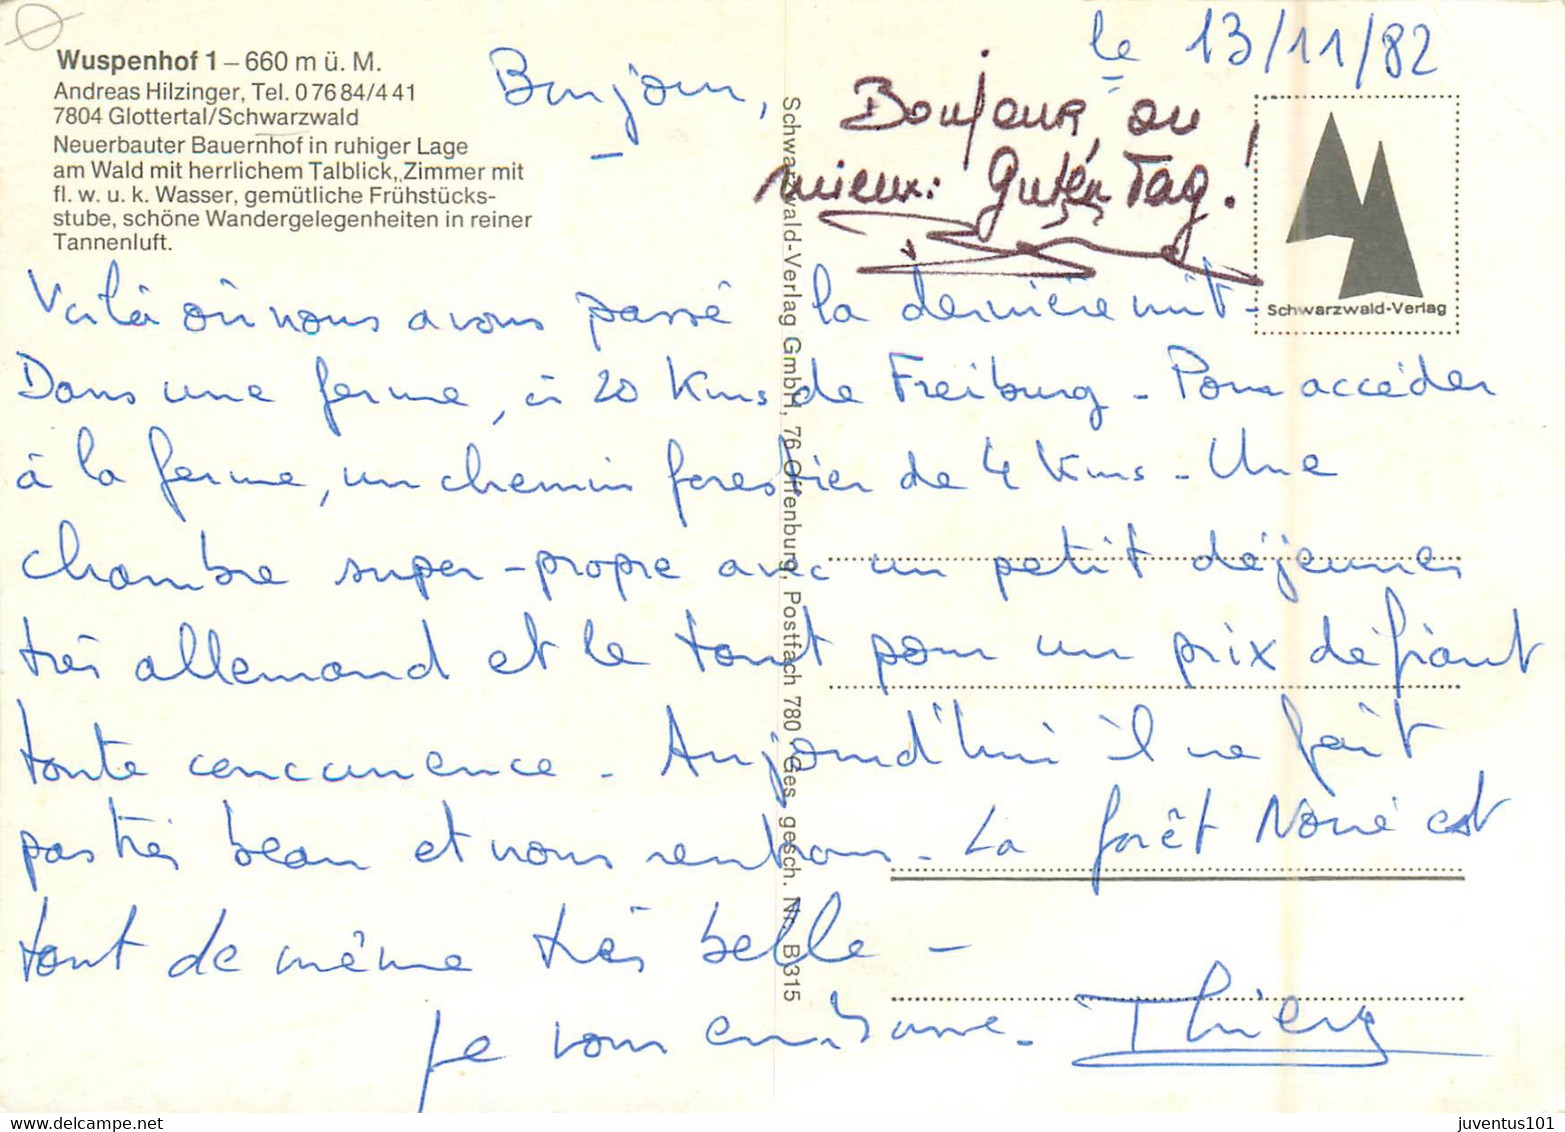 Wuspenhof 1 – 660 m ü. M.
Andreas Hilzinger, Tel. 0 76 84/4 41
7804 Glottertal/Schwarzwald
Neuerbauter Bauernhof in ruhiger Lage
am Wald mit herrlichem Talblick, Zimmer mit
fl. w. u. k. Wasser, gemütliche Frühstücks-
stube, schöne Wandergelegenheiten in reiner
Tannenluft.
le 13/11/82
Bonjour,
Bonjour, ou
mieux: Guten Tag!
Voilà où nous avons passé la dernière nuit -
Dans une ferme, à 20 Kms de Freiburg - Pour accéder
à la ferme, un chemin forestier de 4 Kms - Une
chambre super-propre avec un petit déjeuner
très allemand et le tout pour un prix défiant
toute concurrence - Aujourd'hui il ne fait
pas très beau et nous rentrons - La forêt Noire est
tout de même très belle -
Je vous embrasse - Thierry
Schwarzwald-Verlag GmbH, 76 Offenburg, Postfach 780 · Ges. gesch. Nr. B 315
Schwarzwald-Verlag
juventus101